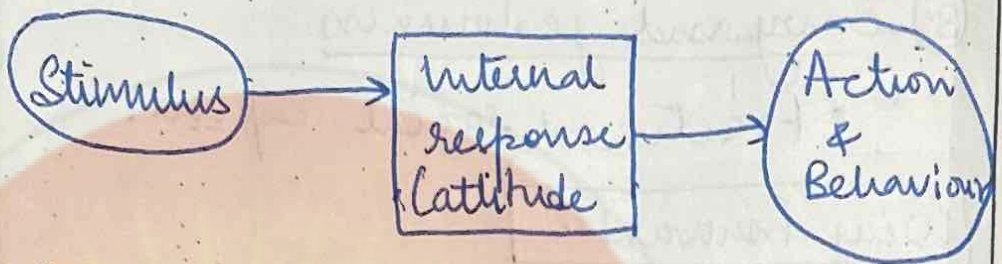 Stimulus
Internal
response
(attitude
Action
&
Behaviour